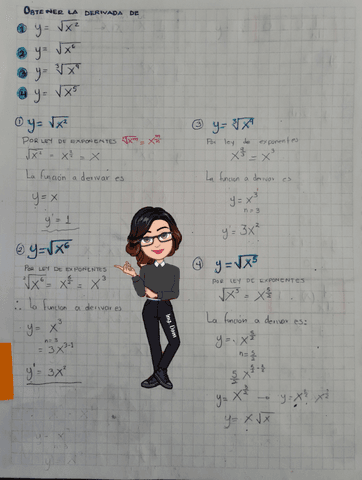 OBTENER LA DERIVADA DE
① y = √x²
② y = √x⁶
③ y = ∛x⁹
④ y = √x⁵
① y = √x²
POR LEY DE EXPONENTES
√x² = x^(2/2) = x
La función a derivar es
y = x
y' = 1
② y = √x⁶
POR LEY DE EXPONENTES
²√x⁶ = x^(6/2) = x³
∴ la función a derivar es
y = x³
n = 3
= 3x³⁻¹
y' = 3x²
③ y = ∛x⁹
Por ley de exponentes
x^(9/3) = x³
La función a derivar es
y = x³
n = 3
y' = 3x²
④ y = √x⁵
POR LEY DE EXPONENTES
√x⁵ = x^(5/2)
La función a derivar es:
y = x^(5/2)
n = 5/2
y = x √x